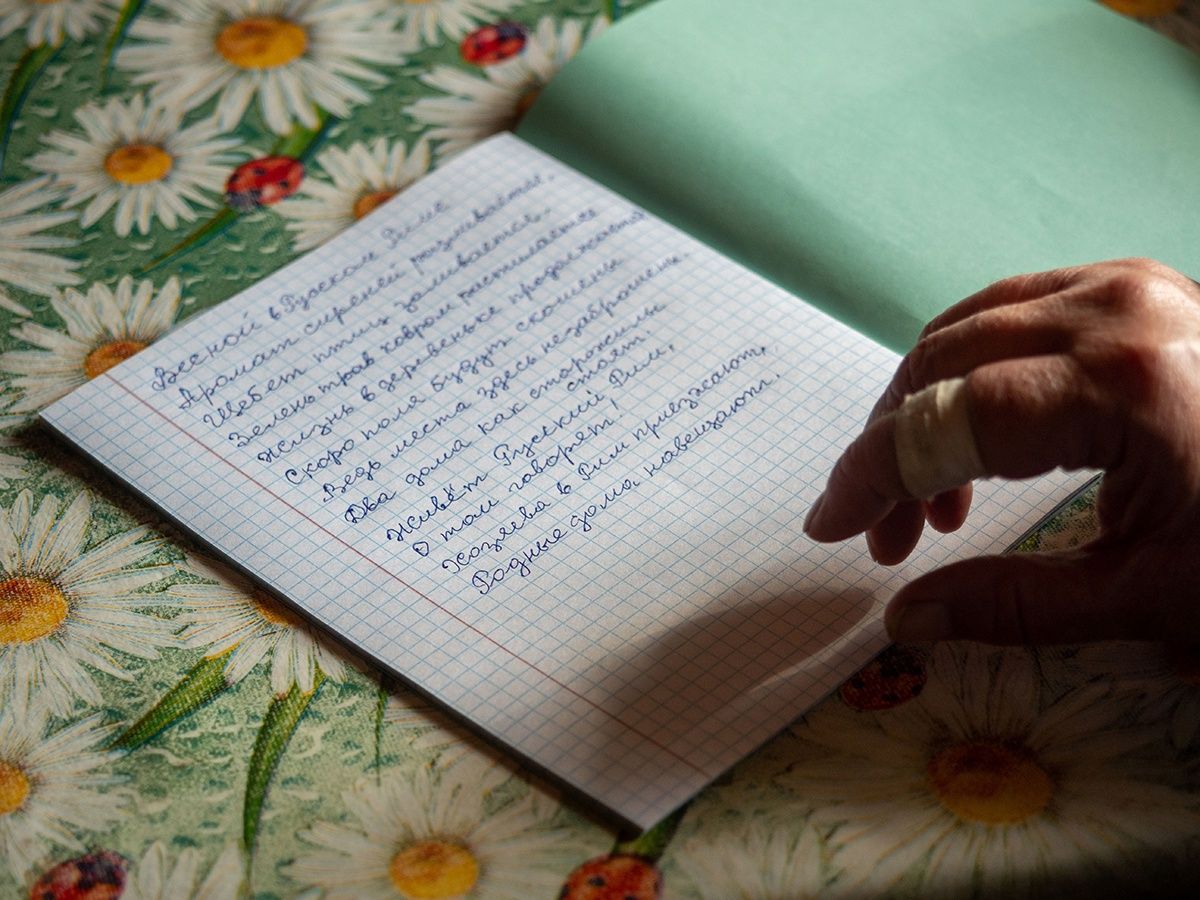 Весной в Рузском Риме
Аромат сиреней разливается.
Щебет птиц заливается.
Зелень трав ковром растилается
Жизнь в деревеньке продолжается
Скоро поля будут скошены
Ведь места здесь незаброшены.
Два дома как сторожилы стоят
Живёт Рузский Рим,
О том говорят!
Хозяева в Рим приезжают,
Родные дома навещают.